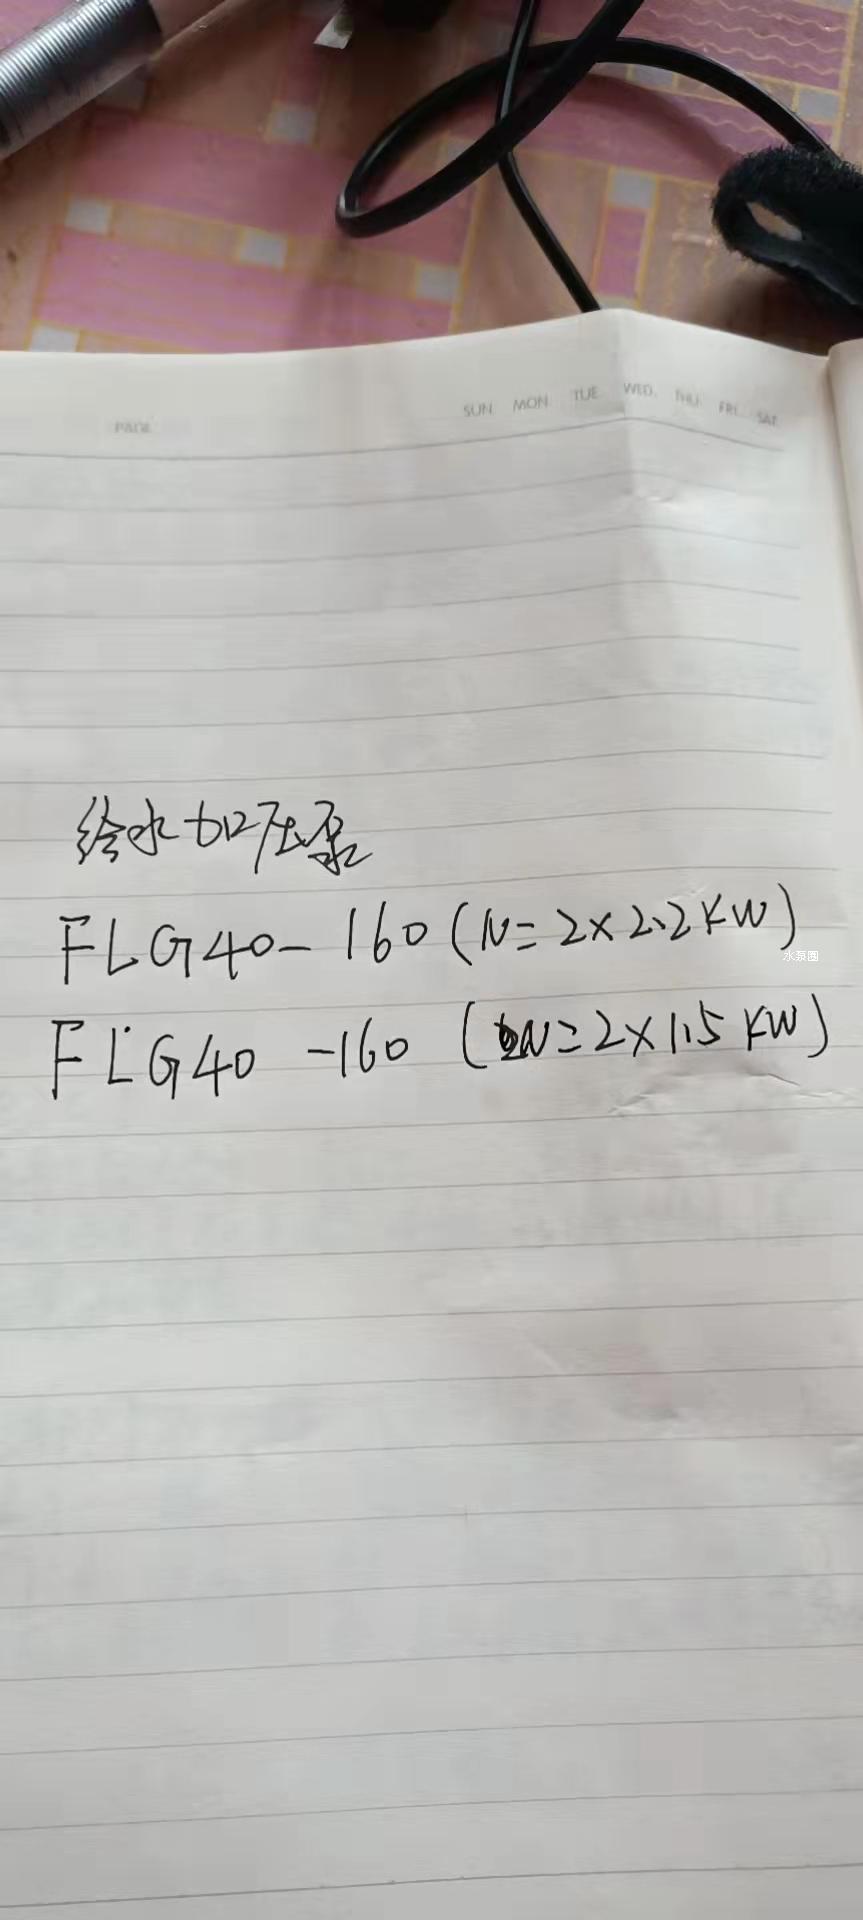 PAGE
SUN MON TUE WED THU FRI SAT
给水加压泵
FLG40-160(N=2×2.2KW)
水泵圈
FLG40-160(N=2×1.5KW)